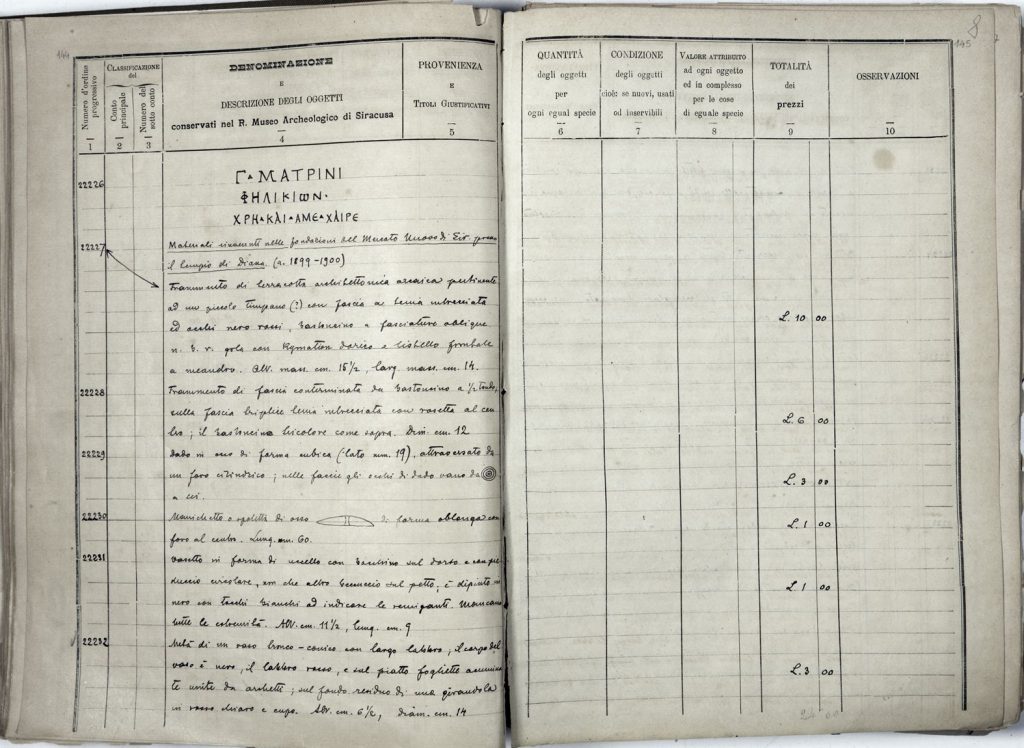 144
Numero d'ordine progressivo
CLASSIFICAZIONE del
Conto principale
Numero del sotto conto
DENOMINAZIONE
E
DESCRIZIONE DEGLI OGGETTI
conservati nel R. Museo Archeologico di Siracusa
PROVENIENZA
E
TITOLI GIUSTIFICATIVI
1 2 3 4 5
22226
Γ▴ΜΑΤΡΙΝΙ
ΦΗΛΙΚΙΩΝ·
ΧΡΗ▴ΚΑΙ▴ΑΜΕ▴ΧΑΙΡΕ
22227 Materiali rinvenuti nelle fondazioni del Mercato Nuovo di Sir. presso
il tempio di Diana. (a. 1899-1900)
Frammento di terracotta architettonica arcaica pertinente
ad un piccolo timpano (?) con fascia a tenia intrecciata
ed occhi nero rossi, bastoncino a fasciature oblique
n. b. r. gola con Kymation dorico e listello frontale
a meandro. Alt. mass. cm. 15 1/2, larg. mass. cm. 14.
22228 Frammento di fascia conterminata da bastoncino a 1/2 tondo,
sulla fascia triplice tenia intrecciata con rosetta al cen
tro; il bastoncino bicolore come sopra. Dim. cm. 12
22229 dado in osso di forma cubica (lato mm. 19), attraversato da
un foro cilindrico; nelle faccie gli occhi di dado vano da
a sei.
22230 Manichetto o spoletta di osso di forma oblonga con
foro al centro. Lung. mm. 60.
22231 vasetto in forma di uccello con bocchino sul dorso e con pe
duccio circolare, con altro beccuccio sul petto; è dipinto in
nero con tocchi bianchi ad indicare le remiganti. Mancano
tutte le estremità. Alt. cm. 11 1/2, lung. cm. 9
22232 Metà di un vaso tronco-conico con largo labbro; il corpo del
vaso è nero, il labbro rosso, e sul piatto fogliette acumina
te unite da archetti; sul fondo residuo di una girandola
in rosso chiaro e cupo. Alt. cm. 6 1/2, diam. cm. 14
145
8
QUANTITÀ
degli oggetti
per
ogni egual specie
6
CONDIZIONE
degli oggetti
cioè: se nuovi, usati
od inservibili
7
VALORE ATTRIBUITO
ad ogni oggetto
ed in complesso
per le cose
di eguale specie
8
TOTALITÀ
dei
prezzi
9
OSSERVAZIONI
10
L. 10 00
L. 6 00
L. 3 00
L. 1 00
L. 1 00
L. 3 00
24 00